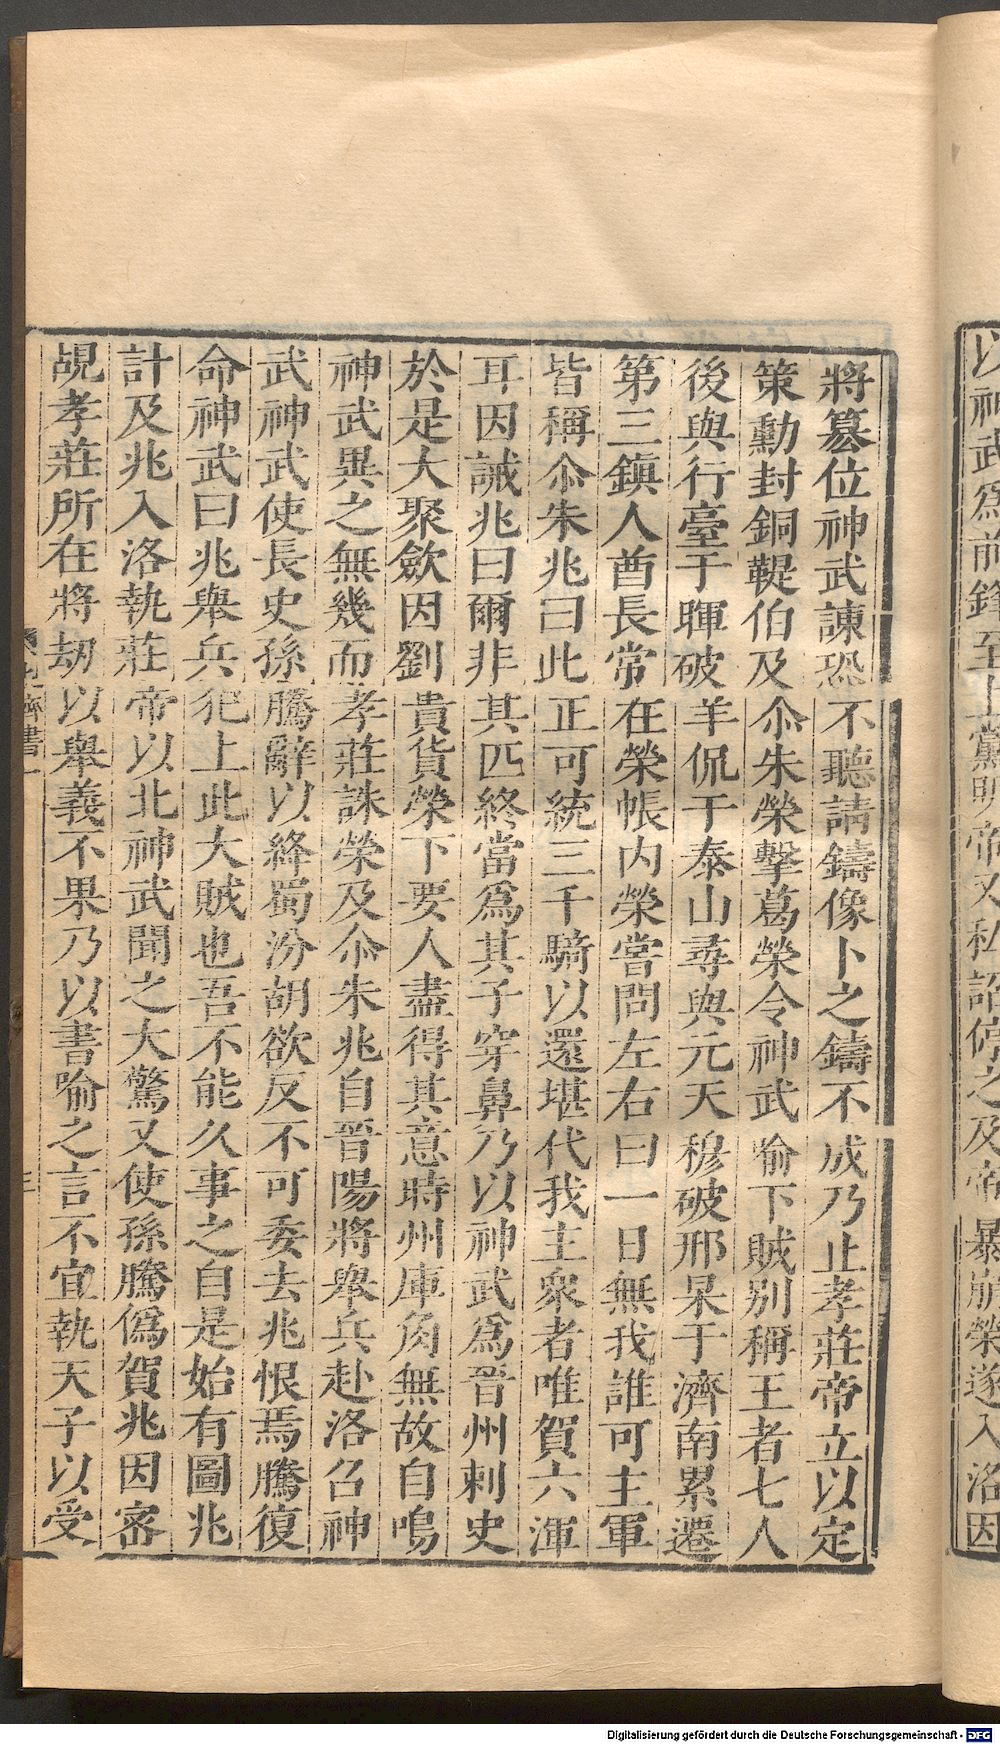 以神武爲前鋒至上黨明帝又私詔停之及帝暴崩榮遂入洛因
將簒位神武諫恐不聽請鑄像卜之鑄不成乃止孝莊帝立以定
策勳封銅鞮伯及尒朱榮擊葛榮令神武喻下賊别稱王者七人
後與行臺于暉破羊侃于泰山尋與元天穆破邢杲于濟南累遷
第三鎮人酋長常在榮帳内榮嘗問左右曰一日無我誰可主軍
皆稱尒朱兆曰此正可統三千騎以還堪代我主衆者唯賀六渾
耳因誡兆曰爾非其匹終當爲其子穿鼻乃以神武爲晉州刺史
於是大聚歛因劉貴貨榮下要人盡得其意時州庫角無故自鳴
神武異之無幾而孝莊誅榮及尒朱兆自晉陽將舉兵赴洛召神
武神武使長史孫騰辭以絳蜀汾胡欲反不可委去兆恨焉騰復
命神武曰兆舉兵犯上此大賊也吾不能久事之自是始有圖兆
計及兆入洛執莊帝以北神武聞之大驚又使孫騰僞賀兆因密
覘孝莊所在將劫以舉義不果乃以書喻之言不宜執天子以受
齊書一
三
Digitalisierung gefördert durch die Deutsche Forschungsgemeinschaft - DFG